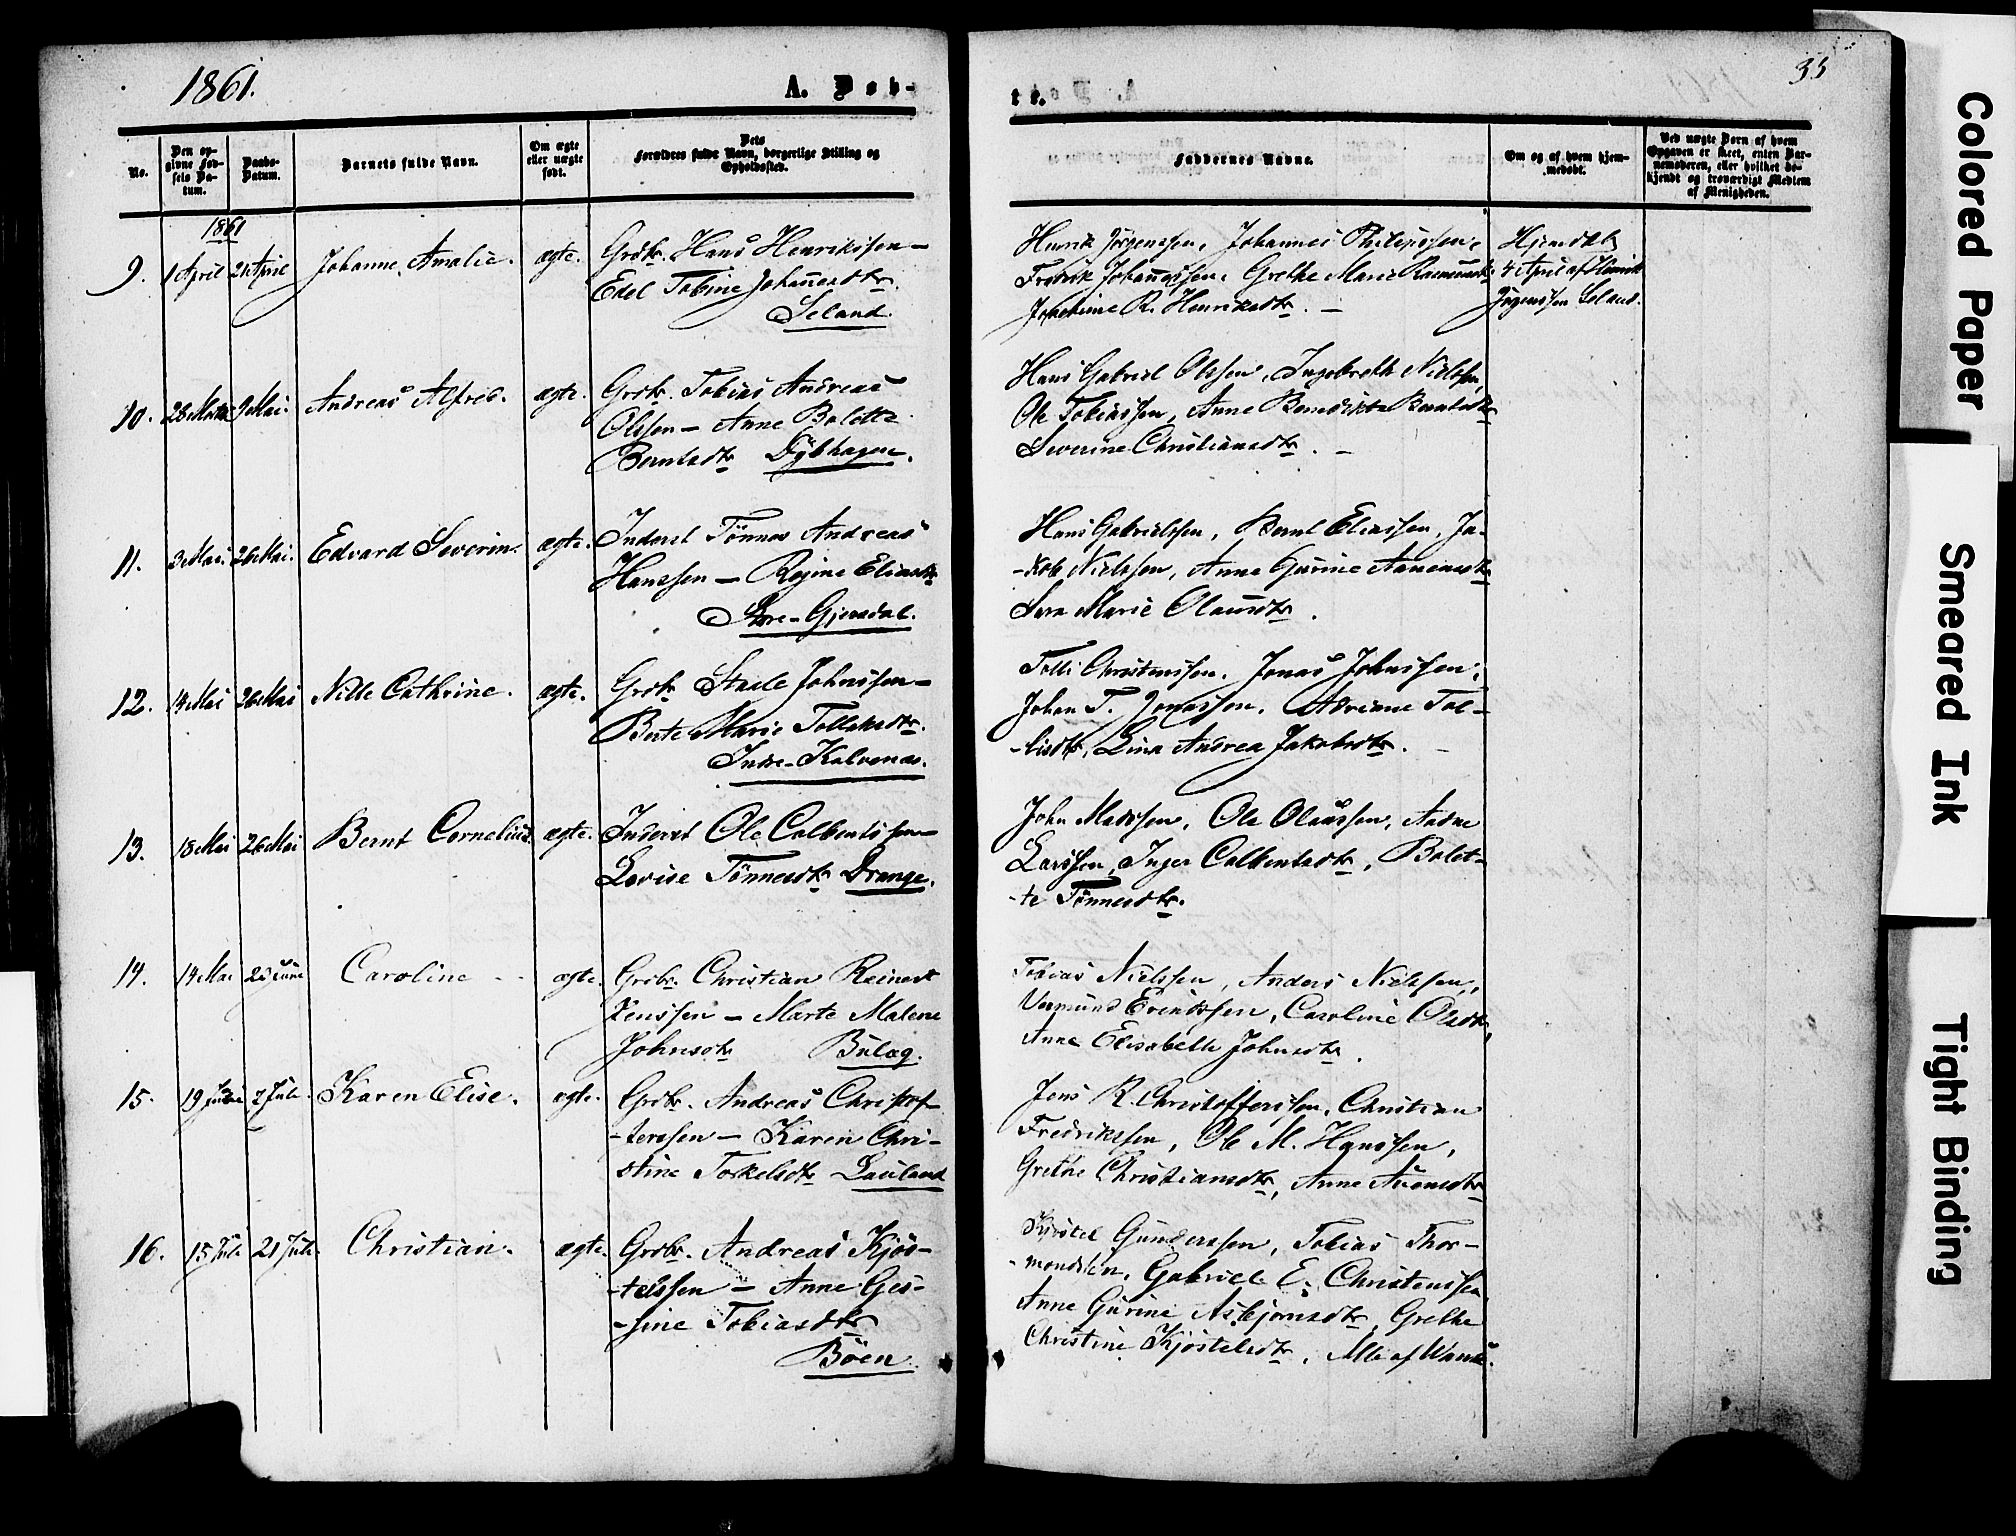 1861.
A. Døb-
te.
35
No.
Den op-
givne Fød-
sels Da-
tum.
Daabs-
Datum.
Barnets fulde Navn.
Om ægte
eller uægte
født.
Dets
Forældres fulde Navn, borgerlige Stilling og
Opholdssted.
Faddernes Navne.
Om og af hvem hjem-
medøbt.
Ved uægte Børn af hvem
Opgaven er skeet, enten Bar-
nemoderen, eller hvilket be-
kjendt og troværdigt Medlem
af Menigheden.
1861
9. 1 April 21 April Johanne Amalie. ægte. Grdbr. Hans Henrikssen –
Edel Tobine Johannesdtr.
Seland.
Henrik Jørgenssen, Johannes Philipssen,
Fredrik Johannessen, Grethe Marie
R. Henriksdtr. –
Hjemdøbt
4 April af Henrik
Jørgenssen Seland.
10. 28 9 Mai. Andreas Alfred. ægte. Grdbr. Tobias Andreas
Olssen – Anne Bolette
Berntsdtr Dybhagen.
Hans Gabriel Olssen, Ingebreth Nielssen,
Ole Tobiassen, Anne Benedikte Berntsdtr
Severine Christiansdtr. –
11. 3 Mai. 26 Mai. Edvard Severin. ægte. Inderst Tønnes Andreas
Hanssen – Regine Eliasdtr
Store-Gjersdal.
Hans Gabrielssen, Bernt Eliassen, Ja-
-kob Nielssen, Anne Gurine
Sara Marie Olausdtr.
12. 14 Mai 26 Mai Nille Cathrine. ægte. Grdbr Staale Johnssen –
Berte Marie Tollaksdtr.
Indre-Kalvenæs.
Tolli Christenssen, Jonas Johnssen,
Johan T. Jonassen, Adriane Tol-
-lisdtr, Lina Andrea Jakobsdtr. –
13. 18 Mai 26 Mai Bernt Cornelius. ægte. Inderst Ole Colbentssen –
Lovise Tønnesdtr Drange.
John Madssen, Ole Olaussen, Andne
Larssen, Inger Colbentsdtr, Bolet-
-te Tønnesdtr.
14. 14 Mai 23 Juni Caroline – – ægte. Grdbr. Christian Reinert
Jenssen – Marte Malene
Johnsdtr Bulæg.
Tobias Nielssen, Anders Nielssen,
Vermund Erikssen, Caroline Olsdtr,
Anne Elisabeth Johnsdtr.
15. 19 Juni 7 Juli Karen Elise. ægte. Grdbr. Andreas Christof-
-ferssen – Karen Chri-
stine Torkelsdtr Lauland
Jens R. Christofferssen, Christian
Fredrikssen, Ole M. Hanssen,
Grethe Christiansdtr, Anne Aanensdtr
16. 15 Juli 21 Juli. Christian. ægte. Grdbr. Andreas Kjøs-
-telssen – Anne Ges-
-sine Tobiasdtr
Bøen.
Kjøstel Gunderssen, Tobias Thor-
-mondssen, Gabriel E. Christenssen
Anne Gurine Asbjørnsdtr, Grethe
Christine Kjøstelsdtr, Alle af Wanse.
Colored Paper
Smeared Ink
Tight Binding